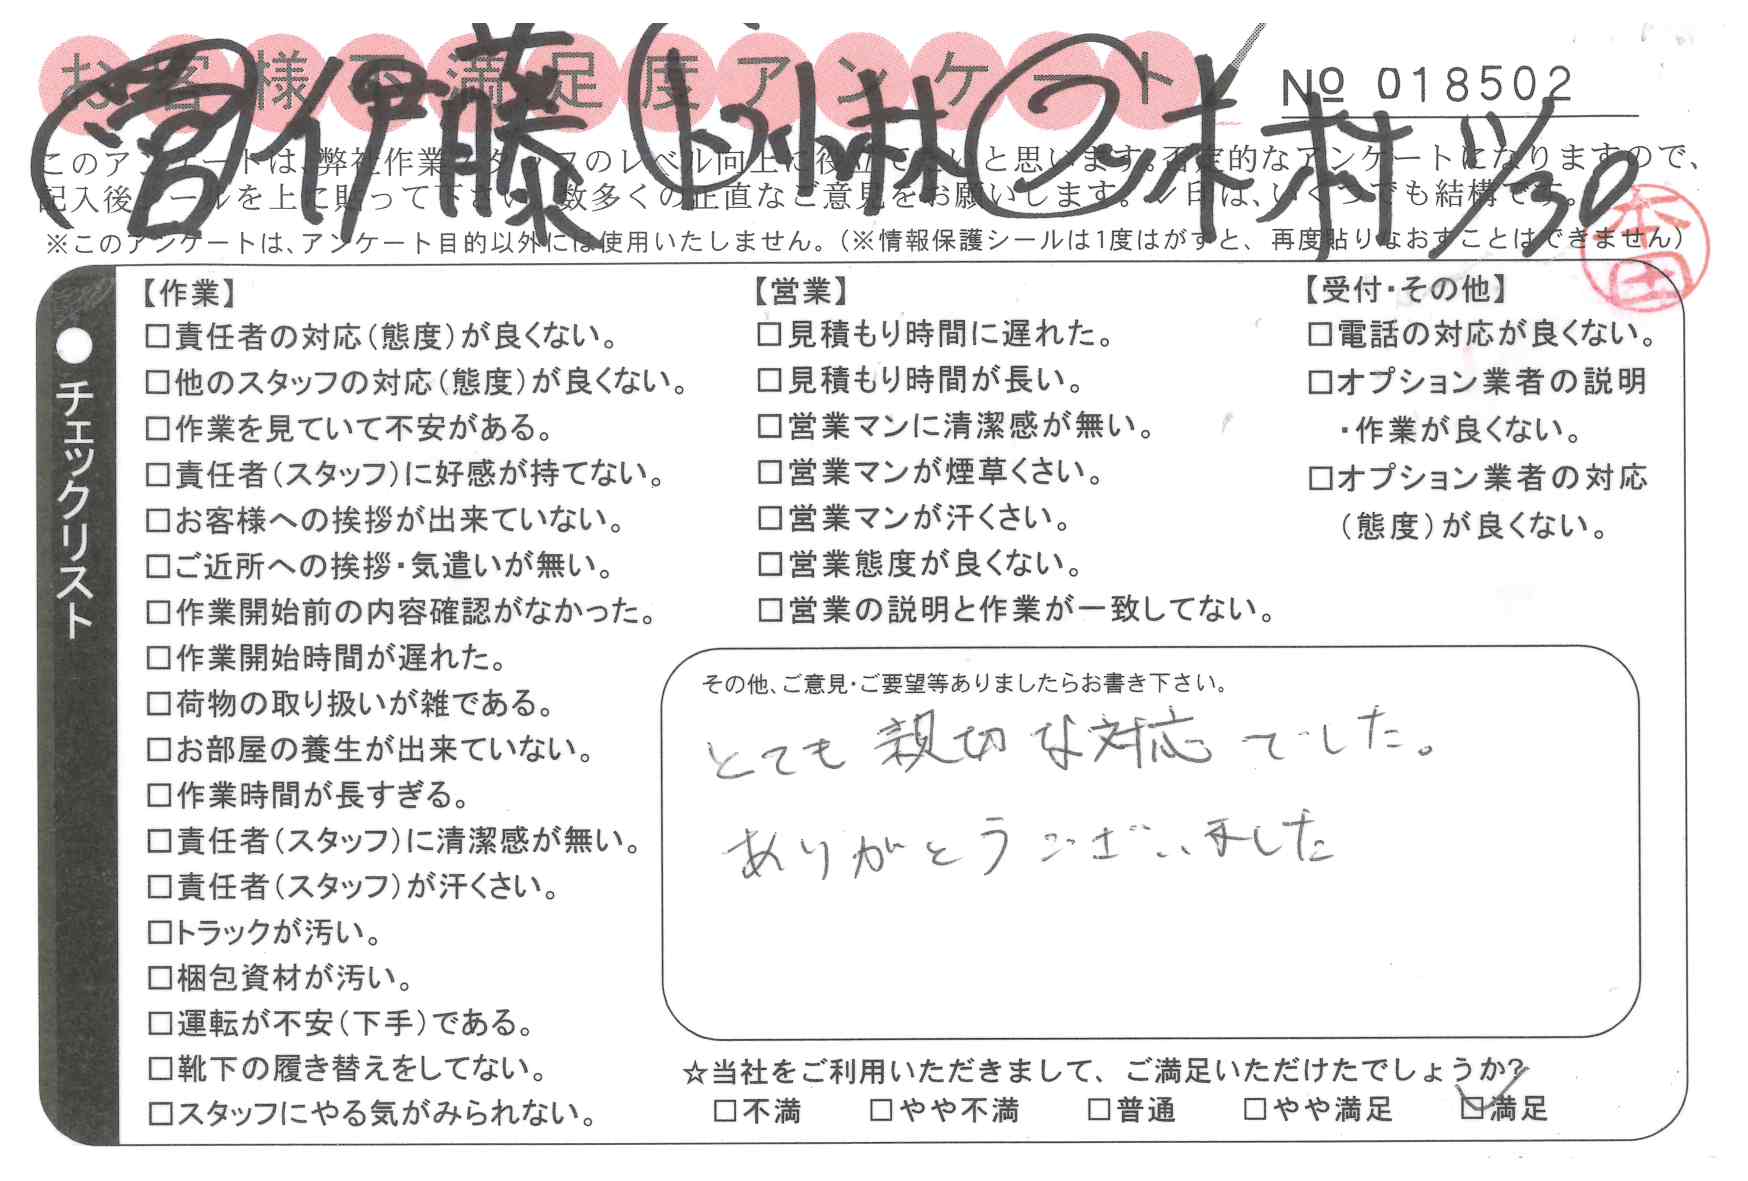 お客様不満足度アンケート
No 018502
営 伊藤 ト 小林 ② 木村 11/30
このアンケートは、弊社作業スタッフのレベル向上に役立てたいと思います。否定的なアンケートになりますので、
記入後シールを上に貼って下さい。数多くの正直なご意見をお願いします。✓印は、いくつでも結構です。
※このアンケートは、アンケート目的以外には使用いたしません。(※情報保護シールは1度はがすと、再度貼りなおすことはできません)
本田
●チェックリスト
【作業】
□責任者の対応(態度)が良くない。
□他のスタッフの対応(態度)が良くない。
□作業を見ていて不安がある。
□責任者(スタッフ)に好感が持てない。
□お客様への挨拶が出来ていない。
□ご近所への挨拶・気遣いが無い。
□作業開始前の内容確認がなかった。
□作業開始時間が遅れた。
□荷物の取り扱いが雑である。
□お部屋の養生が出来ていない。
□作業時間が長すぎる。
□責任者(スタッフ)に清潔感が無い。
□責任者(スタッフ)が汗くさい。
□トラックが汚い。
□梱包資材が汚い。
□運転が不安(下手)である。
□靴下の履き替えをしてない。
□スタッフにやる気がみられない。
【営業】
□見積もり時間に遅れた。
□見積もり時間が長い。
□営業マンに清潔感が無い。
□営業マンが煙草くさい。
□営業マンが汗くさい。
□営業態度が良くない。
□営業の説明と作業が一致してない。
【受付・その他】
□電話の対応が良くない。
□オプション業者の説明
・作業が良くない。
□オプション業者の対応
(態度)が良くない。
その他、ご意見・ご要望等ありましたらお書き下さい。
とても親切な対応でした。
ありがとうございました
☆当社をご利用いただきまして、ご満足いただけたでしょうか?
□不満 □やや不満 □普通 □やや満足 ☑満足